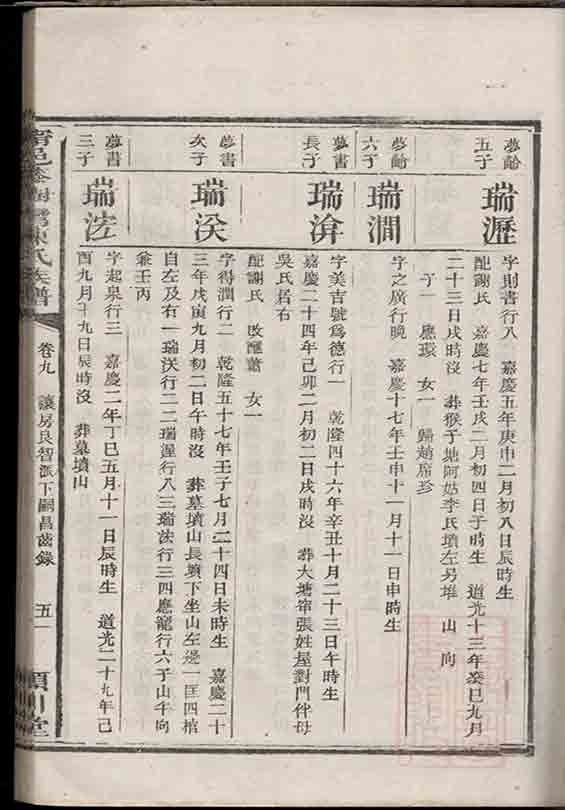 夢齡
五子
瑞瀝
字則書行八　嘉慶五年庚申二月初八日辰時生
配謝氏　嘉慶七年壬戌二月初四日子時生　道光十三年癸巳九月
二十三日戌時沒　葬猴子塘阿姑李氏墳左另堆　山　向
子一　應環　女一　歸趙席珍
夢齡
六子
瑞澗
字之廣行晚　嘉慶十七年壬申十一月十一日申時生
夢書
長子
瑞渰
字美吉號為德行一　乾隆四十六年辛丑十月二十三日午時生
嘉慶二十四年己卯二月初二日戌時沒　葬大塘𡩋張姓屋對門伴母
吳氏居右
配謝氏　改醮蕭　女一
夢書
次子
瑞㳄
字得潤行二　乾隆五十七年壬子七月二十四日未時生　嘉慶二十
三年戊寅九月初二日午時沒　葬墓墳山長墳下坐山左邊一匡四棺
自左及右一瑞㳄行二二瑞渥行八三瑞浤行三四應龍行六子山午向
兼壬丙
夢書
三子
瑞浤
字起泉行三　嘉慶二年丁巳五月十一日辰時生　道光二十九年己
酉九月十九日辰時沒　葬墓墳山
陳氏族譜
卷九　讓房良智派下嗣昌齒錄
五一
潁川堂